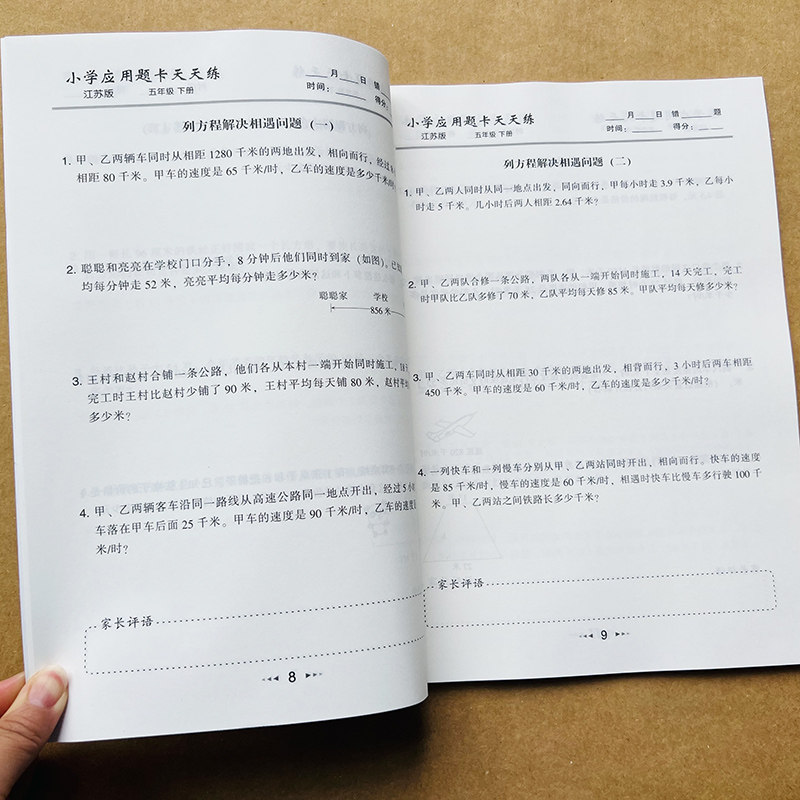 小学应用题卡天天练
江苏版 五年级 下册
____月____日 错
时间：______ 得分：
列方程解决相遇问题（一）
1. 甲、乙两辆车同时从相距 1280 千米的两地出发，相向而行，经过
相距 80 千米。甲车的速度是 65 千米/时，乙车的速度是多少千米/时
2. 聪聪和亮亮在学校门口分手，8 分钟后他们同时到家（如图）。已
均每分钟走 52 米，亮亮平均每分钟走多少米？
聪聪家 学校
856 米
3. 王村和赵村合铺一条公路，他们各从本村一端开始同时施工，
完工时王村比赵村少铺了 90 米，王村平均每天铺 80 米，赵村平
多少米？
4. 甲、乙两辆客车沿同一路线从高速公路同一地点开出，经过 5
车落在甲车后面 25 千米。甲车的速度是 90 千米/时，乙车的速度
米/时？
家长评语
8
小学应用题卡天天练
江苏版 五年级 下册
____月____日 错____题
时间：____ 得分：____
列方程解决相遇问题（二）
1. 甲、乙两人同时从同一地点出发，同向而行，甲每小时走 3.9 千米，乙每小
时走 5 千米。几小时后两人相距 2.64 千米？
2. 甲、乙两队合修一条公路，两队各从一端开始同时施工，14 天完工，完工
时甲队比乙队多修了 70 米，乙队平均每天修 85 米。甲队平均每天修多少米？
3. 甲、乙两车同时从相距 30 千米的两地出发，相背而行，3 小时后两车相距
450 千米。甲车的速度是 60 千米/时，乙车的速度是多少千米/时？
4. 一列快车和一列慢车分别从甲、乙两站同时开出，相向而行。快车的速度
是 85 千米/时，慢车的速度是 60 千米/时，相遇时快车比慢车多行驶 100 千
米。甲、乙两站之间铁路长多少千米？
家长评语
9